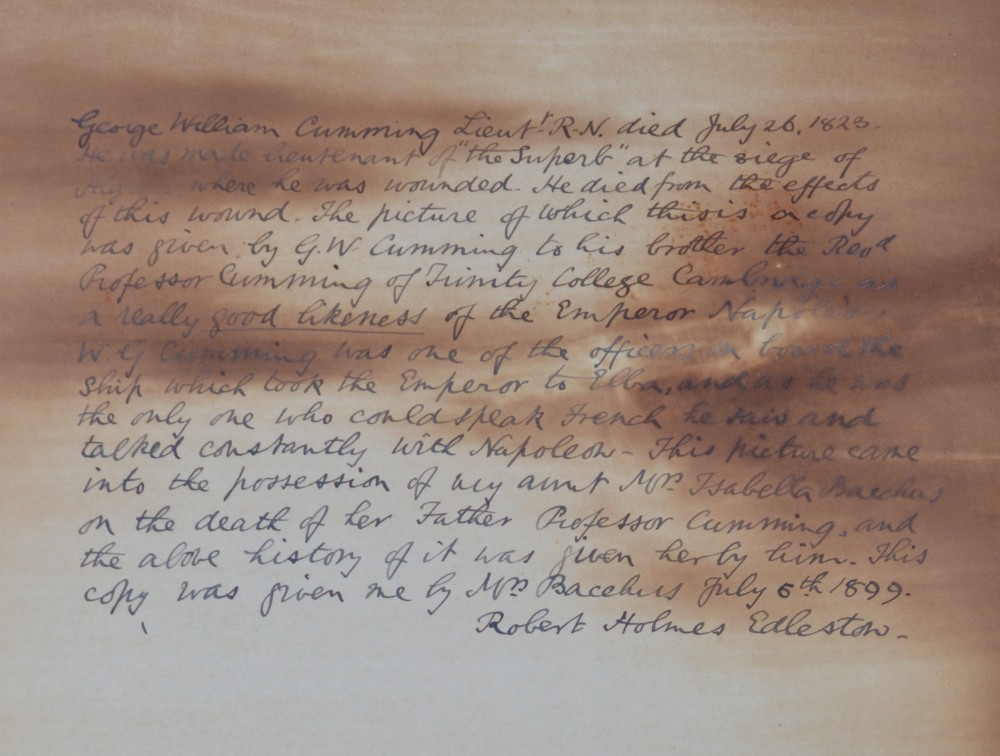 George William Cumming Lieut.t R.N. died July 26, 1823.
He was made lieutenant of "the Superb" at the siege of
where he was wounded. He died from the effects
of this wound. The picture of which this is a copy
was given by G.W Cumming to his brother the Revd
Professor Cumming of Trinity College Cambridge as
a really good likeness of the Emperor Napoleon.
W.G Cumming was one of the officers on board the
ship which took the Emperor to Elba, and as he was
the only one who could speak French he saw and
talked constantly with Napoleon - This picture came
into the possession of my aunt Mrs Isabella Bacchus
on the death of her Father Professor Cumming, and
the above history of it was given her by him. This
copy was given me by Mrs Bacchus July 6th 1899.
Robert Holmes Edleston -